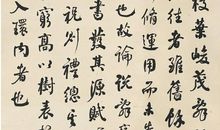 枝葉峻茂辭
往者雖舊餘
脩運用而未
故論說辭
書發其源賦
祝則禮總
窮高以樹表
入環內者也